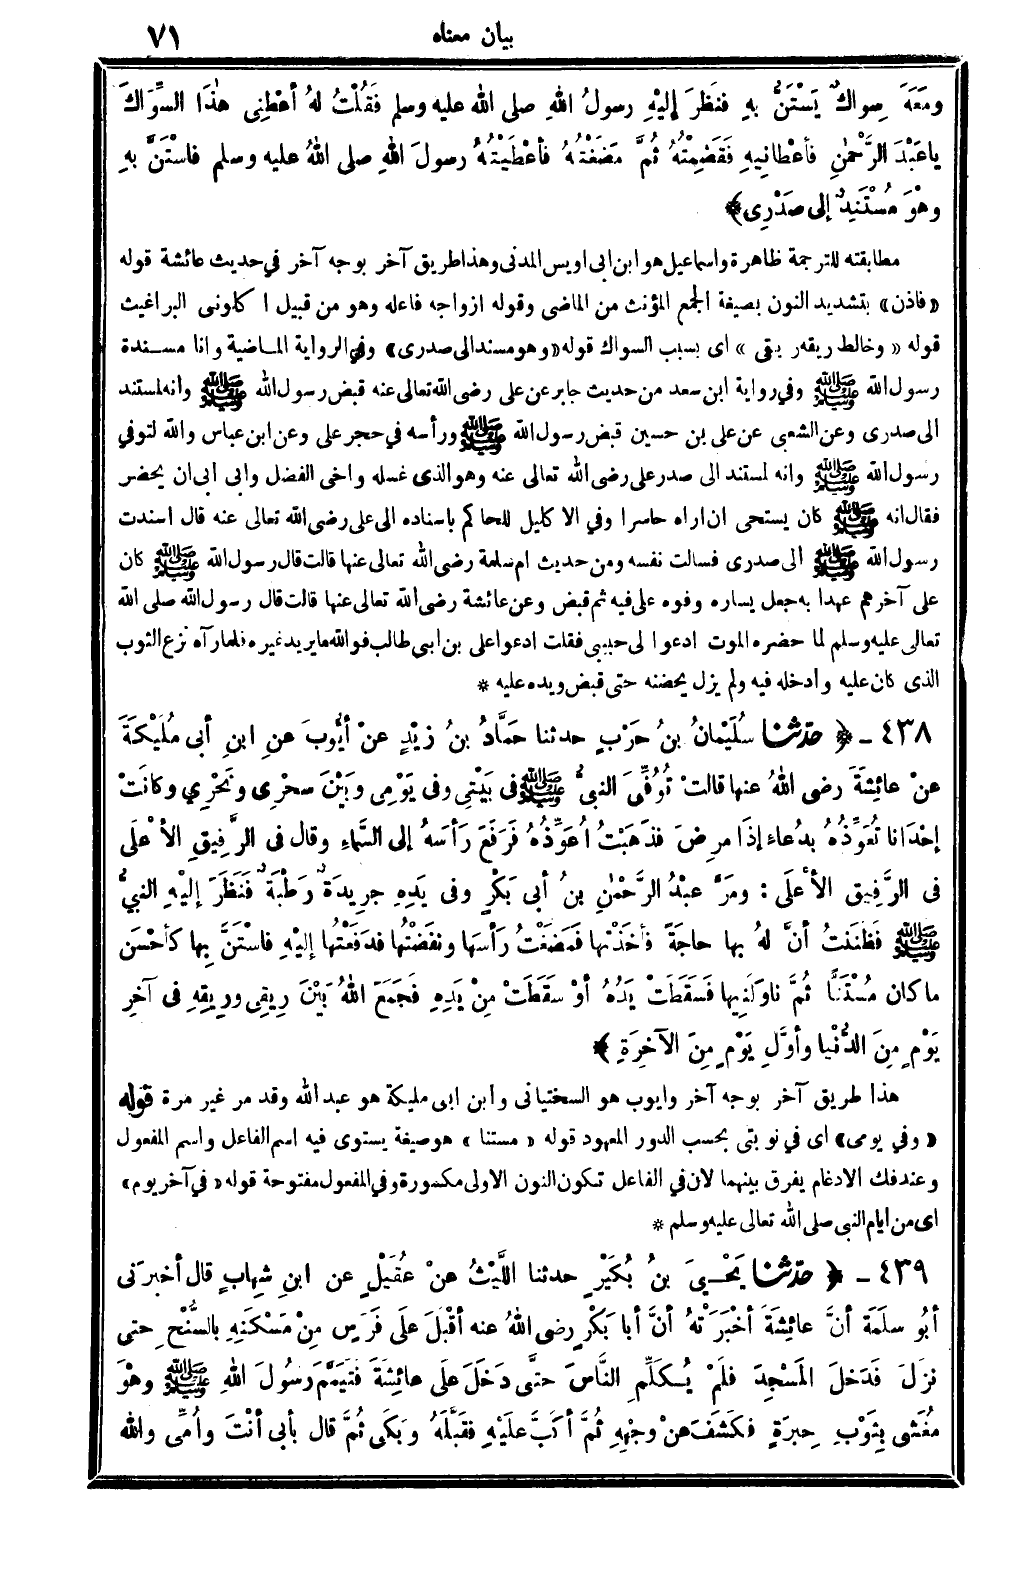 بيان معناه ٧١
ومَعَهَ سِواكٌ يَسْتَنُّ بهِ فنَظَرَ إليْهِ رسولُ اللهِ صلى الله عليه وسلم فَقُلْتُ لهُ أعْطِنِى هذَا السِّوَاكَ
ياعَبْدَ الرَّحْمٰنِ فأعْطانِيهِ فَقَضِمْتُهُ ثُمَّ مَضَغْتُهُ فأعْطَيْتُهُ رسولَ اللهِ صلى اللهُ عليه وسلم فاسْتَنَّ بهِ
وهْوَ مُسْتَنِدٌ إلى صَدْرِى﴾
مطابقته للترجمة ظاهرة واسماعيل هو ابن ابى اويس المدنى وهذا طريق آخر بوجه آخر في حديث عائشة قوله
«فاذن» بتشديد النون بصيغة الجمع المؤنث من الماضى وقوله ازواجه فاعله وهو من قبيل اكلونى البراغيث
قوله « وخالط ريقه ريقى » اى بسبب السواك قوله «وهو مسند الى صدرى» وفي الرواية الماضية وانا مسندة
رسول الله ﷺ وفي رواية ابن سعد من حديث جابر عن على رضى الله تعالى عنه قبض رسول الله ﷺ وانه لمستند
الى صدرى وعن الشعبى عن على بن حسين قبض رسول الله ﷺ ورأسه في حجر على وعن ابن عباس والله لتوفي
رسول الله ﷺ وانه لمستند الى صدر على رضى الله تعالى عنه وهو الذى غسله واخى الفضل وابى ابى ان يحضر
فقال انه ﷺ كان يستحى ان اراه حاسرا وفي الاكليل للحاكم باسناده الى على رضى الله تعالى عنه قال اسندت
رسول الله ﷺ الى صدرى فسالت نفسه ومن حديث ام سلمة رضى الله تعالى عنها قالت قال رسول الله ﷺ كان
على آخرهم عهدا به جعل يساره وفوه على فيه ثم قبض وعن عائشة رضى الله تعالى عنها قالت قال رسول الله صلى الله
تعالى عليه وسلم لما حضره الموت ادعوا لى حبيبى فقلت ادعوا على بن ابى طالب فوالله ما يريد غيره فلما رآه نزع الثوب
الذى كان عليه وأدخله فيه ولم يزل يحضنه حتى قبض ويده عليه *
٤٣٨ ـ ﴿ حدّثنا سُلَيْمانُ بنُ حَرْبٍ حدثنا حَمَّادُ بنُ زيْدٍ عنْ أيُّوبَ عنِ ابنِ أبى مُلَيْكَةَ
عنْ عائِشةَ رضى اللهُ عنها قالتْ تُوُفِّىَ النبىُّ ﷺ فى بَيْتِى وفى يَوْمِى وبَيْنَ سحْرِى ونَحْرِي وكانَتْ
إحْدَانا تُعَوِّذُهُ بدُعاء إذَا مرِضَ فذَهَبْتُ اُعَوِّذُهُ فرَفَعَ رَأسَهُ إلى السَّماءِ وقال فى الرَّفِيقِ الأعْلَى
فى الرَّفِيقِ الأعْلَى : ومَرَّ عبْدُ الرَّحْمٰنِ بنُ أبى بَكْرٍ وفى يَدِهِ جرِيدَةٌ رَطْبَةٌ فنَظَرَ إليْهِ النبىُّ
ﷺ فَظَنَنْتُ أنَّ لهُ بها حاجَةً فأخَذْتُها فَمضَغْتُ رَأسَها ونفَضْتُها فدَفَعْتُها إليْهِ فاسْتَنَّ بها كأحْسَنِ
ما كان مُسْتَنًّا ثُمَّ ناوَلَنِيها فَسَقَطَتْ يَدُهُ أوْ سقَطَتْ مِنْ يَدِهِ فجَمَعَ اللهُ بَيْنَ رِيقِى ورِيقِهِ فى آخرِ
يَوْمٍ مِنَ الدُّنْيا وأوَّلِ يَوْمٍ مِنَ الآخِرَةِ ﴾
هذا طريق آخر بوجه آخر وايوب هو السختيانى وابن ابى مليكة هو عبد الله وقد مر غير مرة قوله
« وفي يومى» اى في نوبتى بحسب الدور المعهود قوله « مستنا » هو صيغة يستوى فيه اسم الفاعل واسم المفعول
وعند فك الادغام يفرق بينهما لان في الفاعل تكون النون الاولى مكسورة وفي المفعول مفتوحة قوله «في آخر يوم»
اى من ايام النبى صلى الله تعالى عليه وسلم *
٤٣٩ ـ ﴿ حدّثنا يَحْيىَ بنُ بُكَيْرٍ حدثنا اللَّيْثُ عنْ عُقَيْلٍ عن ابنِ شِهابٍ قال أخبرَنى
أبُو سلَمَةَ أنَّ عائِشَةَ أخْبَرَتْهُ أنَّ أبا بَكْرٍ رضى اللهُ عنه أقْبَلَ علَى فَرَسٍ مِنْ مَسْكَنِهِ بالسُّنْحِ حتى
نزَلَ فَدَخلَ المَسْجِدَ فلَمْ يُكلِّمِ النَّاسَ حتَّى دَخَلَ علَى عائِشَةَ فتَيَمَّمَ رسُولَ اللهِ ﷺ وهْوَ
مُغَشى بثَوْبِ حِبرَةٍ فكَشَفَ عنْ وجْهِهِ ثُمَّ أكَبَّ علَيْهِ فقَبَّلَهُ وبَكَى ثُمَّ قال بأبى أنْتَ وأُمِّى والله